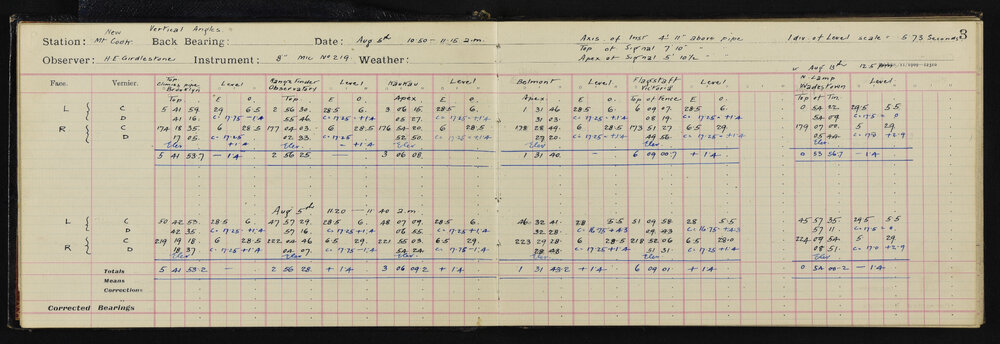 New Vertical Angles.
Station: Mt Cook Back Bearing: Date: Aug 5th 10.50 - 11.15 a.m.
Axis of Inst 4' 11" above pipe
1 div. of Level scale = 5.73 Seconds 3
Top of Signal 7' 10"
Observer: H E Girdlestone Instrument: 8" Mic No 219 Weather:
Apex of Signal 5' 10½"
Aug 13th 12.5 p.m.
Face. Vernier. Top Climies pipe Brooklyn Level Rangefinder Observatory Level Kaukau Level Belmont Level Flagstaff Victoria Level N. Lamp Wadestown Level
Top E O. Top. E O. Apex E O. Apex. E O. Top of Fence E O. Top of Tin
L C 5 41 59. 29 6.5 2 56 30. 28.5 6. 3 06 15. 28.5 6. 1 31 46 28.5 6. 6 09 07. 28.5 6. 0 54 22 29.5 5.5
D 41 16. C=17.75 -1.4 55 46. C=17.25 +1.4 05 27. C=17.25 +1.4 31 03. C=17.25 +1.4 08 19. C=17.25 +1.4 54 09 C=17.5 + 0
R C 174 18 35. 6 28.5 177 04 03. 6 28.5 176 54 20. 6 28.5 178 28 49. 6 28.5 173 51 27 6.5 29. 179 07 00. 5 29
D 17 05. C=17.25 02 33. C=17.25 52 50. C=17.25 +1.4 27 20. C=17.25 +1.4 49 56 C=17.75 -1.4 05 40 C=17.0 +2.9
Elev. +1.4 Elev. +1.4 Elev. Elev. Elev. Elev.
5 41 53.7 - 1.4 2 56 25. — 3 06 08. 1 31 40. — 6 09 00.7 + 1.4 0 53 56.7 - 1.4
Aug 5th 11.20 - 11.40 a.m.
L C 50 42 53. 28.5 6. 47 57 29. 28.5 6. 48 07 09. 28.5 6. 46 32 41. 28 5.5 51 09 58. 28 5.5 45 57 35 29.5 5.5
D 42 35. C=17.25 +1.4 57 16. C=17.25 +1.4 06 55. C=17.25 +1.4 32 28. C=16.75 +4.3 09 43 C=16.75 +4.3 57 11. C=17.5 = 0.
R C 219 19 18. 6 28.5 222 04 46 6.5 29. 221 55 03 6.5 29. 223 29 28. 6 28.5 218 52 06 6.5 28.0 224 09 54. 5 29
D 18 37. C=17.25 +1.4 04 07. C=17.75 -1.4 54 24. C=17.75 -1.4 28 48. C=17.25 +1.4 51 31 C=17.25 +1.4 08 51. C=17.0 +2.9
Elev. Elev. Elev. Elev. Elev. Elev.
Totals 5 41 53.2 — 2 56 28. + 1.4 3 06 09.2 + 1.4 1 31 43.2 + 1.4 6 09 01 + 1.4 0 54 00.2 - 1.4
Means
Corrections
Corrected Bearings